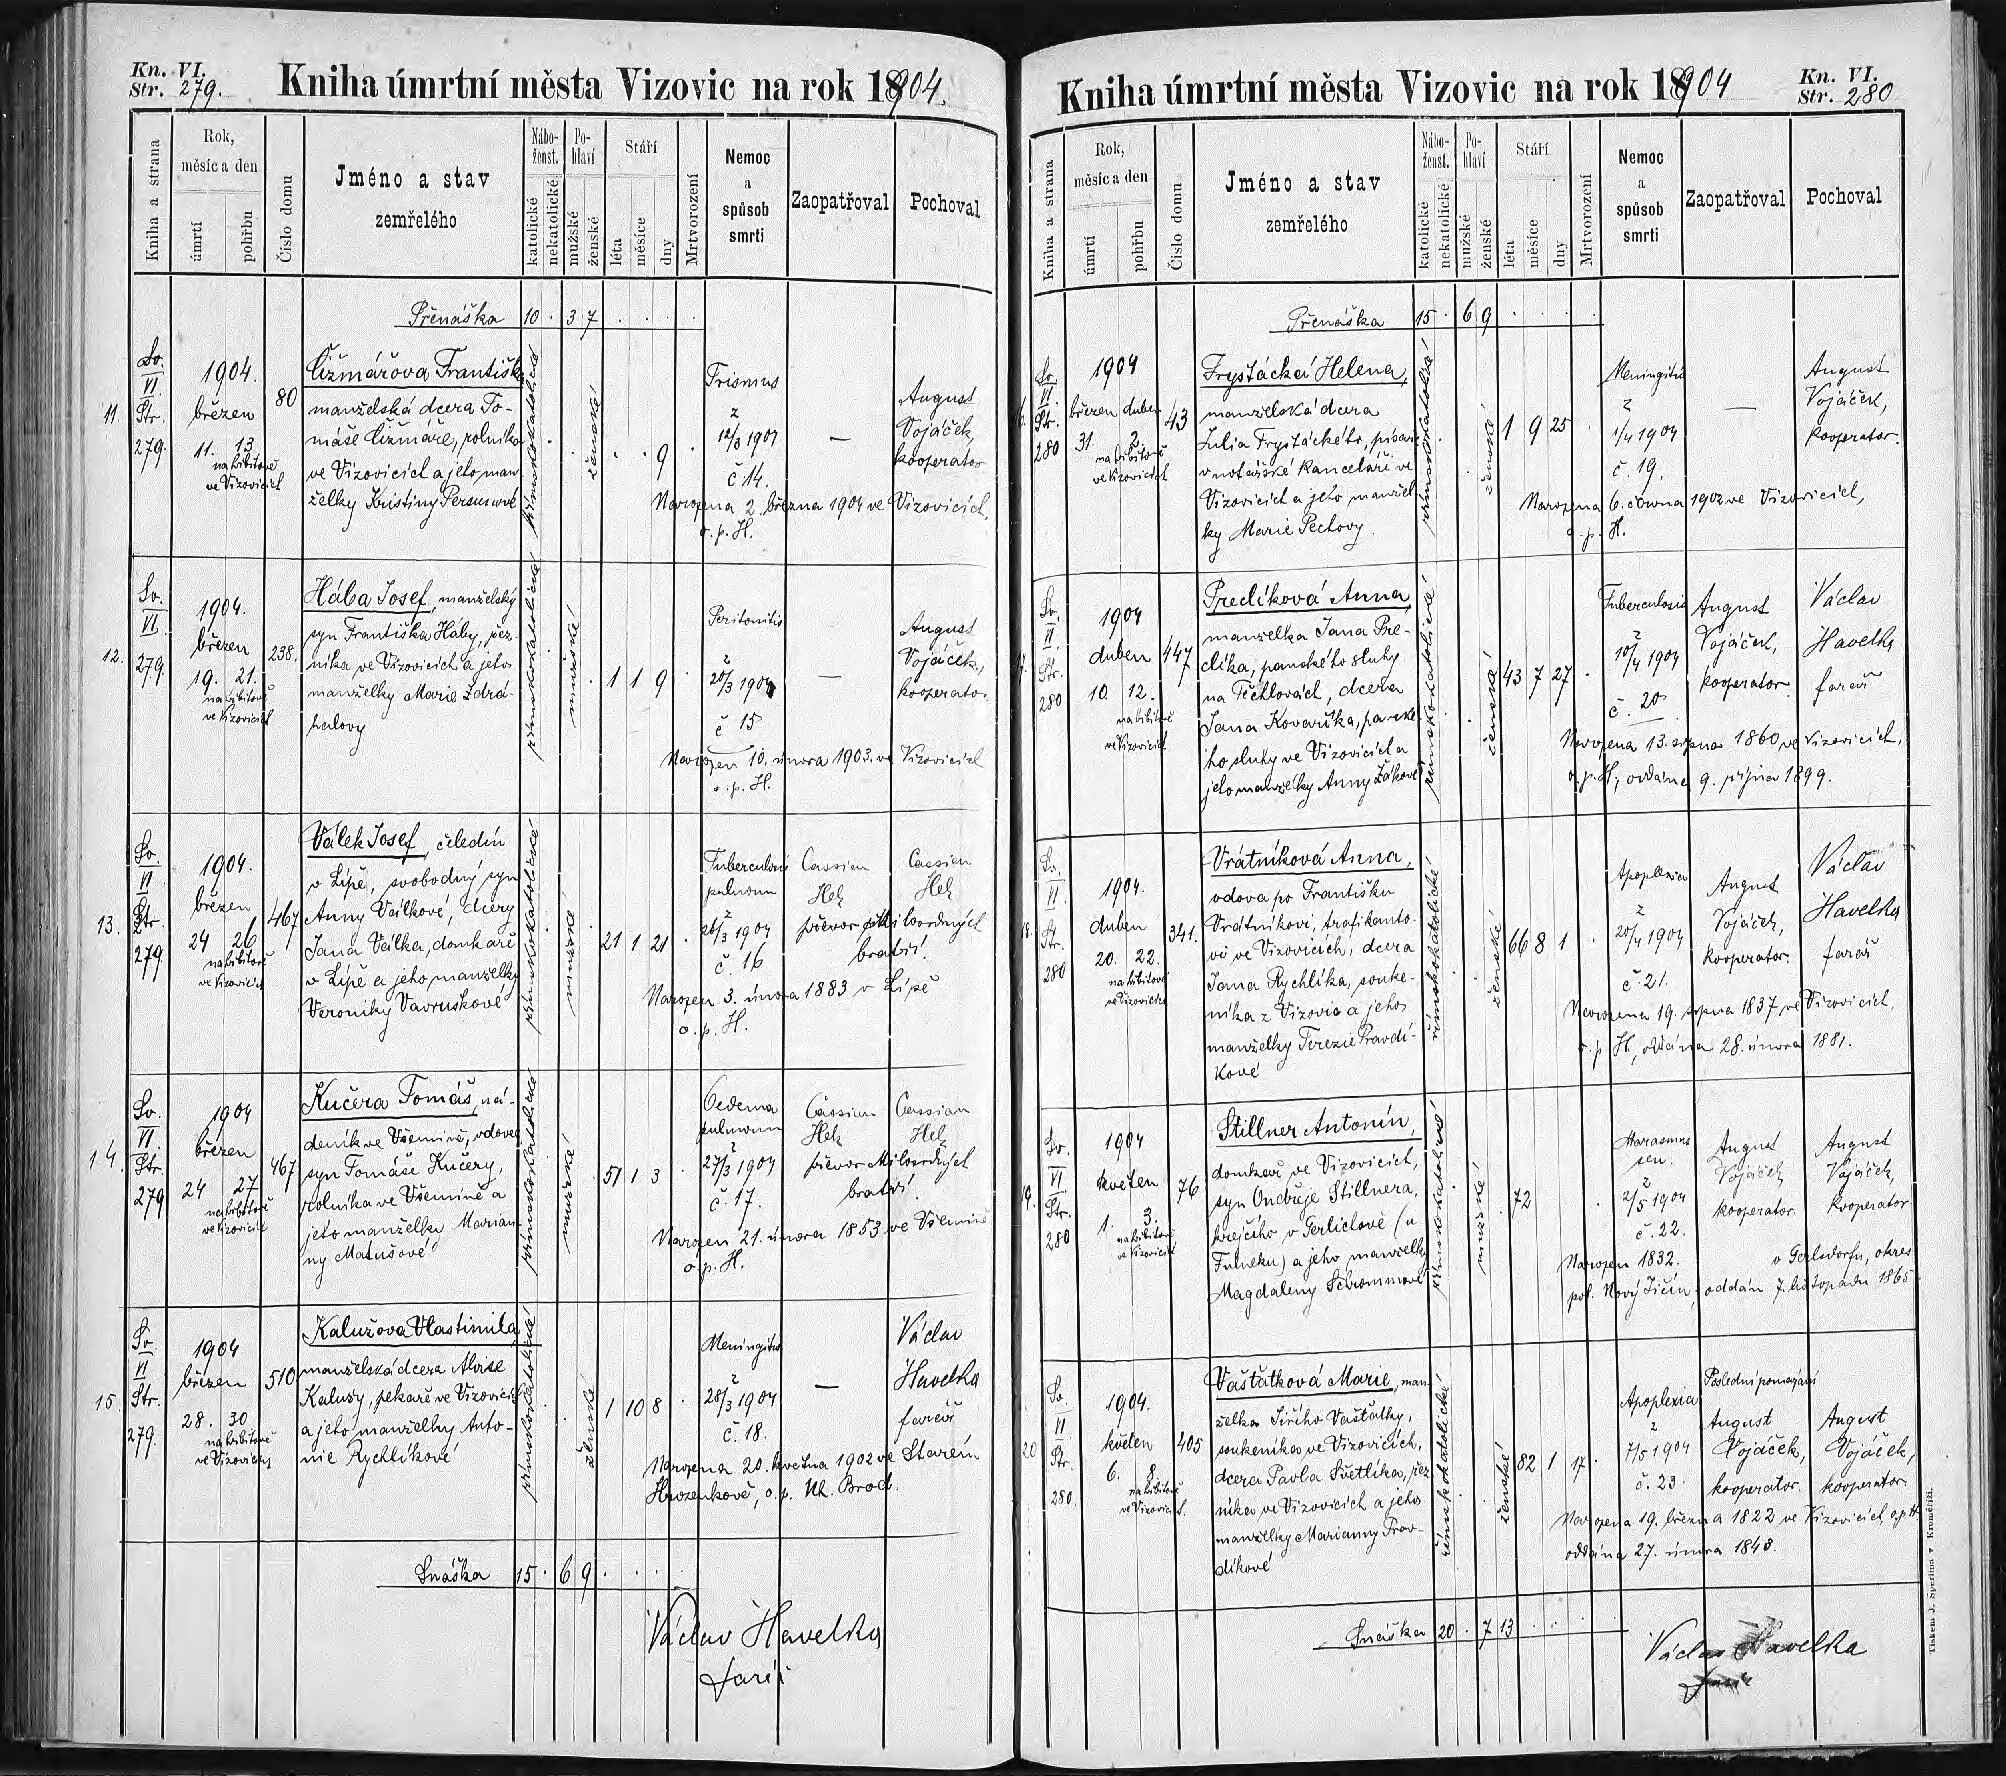 Kn. VI.
Str. 279.
Kniha úmrtní města Vizovic na rok 1904.
Kniha a strana
Rok,
měsíc a den
úmrtí
pohřbu
Číslo domu
Jméno a stav
zemřelého
Nábo-
ženst.
katolické
nekatolické
Po-
hlaví
mužské
ženské
Stáří
léta
měsíce
dny
Mrtvorození
Nemoc
a
spůsob
smrti
Zaopatřoval
Pochoval
Přenáška 10 . 3 7 . . . .
11.
Sv.
VI.
Str.
279.
1904.
březen
11. 13.
na hřbitově
ve Vizovicích
80
Čižmářova Františka
manželská dcera To-
máše Čižmáře, rolníka
ve Vizovicích a jeho man
želky Kristiny Persunové
římskokatolické
ženské
. . 9 .
Trismus
z
12/3 1904
č 14.
—
August
Vojáček,
kooperator
Narozena 2. března 1904 ve Vizovicích,
o. p. H.
12.
Sv.
VI.
279.
1904.
březen
19. 21.
na hřbitově
ve Vizovicích
238.
Hába Josef, manželský
syn Františka Háby, řez-
níka ve Vizovicích a jeho
manželky Marie Zdrá-
halovy
římskokatolické
mužské
1 1 9
Peritonitis
z
20/3 1904
č 15
—
August
Vojáček,
kooperator.
Narozen 10. února 1903. ve Vizovicích
o. p. H.
13.
Sv.
VI
Str.
279
1904.
březen
24 26
na hřbitově
ve Vizovicích
467
Válek Josef, čeledín
v Lípě, svobodný syn
Anny Válkové, dcery
Jana Válka, domkaře
v Lípě a jeho manželky
Veroniky Vavruškové
římskokatolické
mužské
21 1 21 .
Tuberculosis
pulmonum
z
26/3 1904
č. 16
Cassian
Helz
Cassian
Helz
převor Milosrdných
bratří.
Narozen 3. února 1883 v Lípě
o. p. H.
14.
Sv.
VI.
Str.
279
1904
březen
24 27
na hřbitově
ve Vizovicích
467
Kučera Tomáš, ná-
deník ve Všemině, vdovec
syn Tomáše Kučery,
rolníka ve Všemině a
jeho manželky Marian-
ny Matušové
římskokatolické
mužské
51 1 3
Oedema
pulmonum
z
27/3 1904
č. 17.
Cassian
Helz
Cassian
Helz
převor Milosrdných
bratří.
Narozen 21. února 1853 ve Všemině
o. p. H.
15.
Sv
VI
Str.
279.
1904
březen
28. 30
na hřbitově
ve Vizovicích
510
Kalužova Vlastimila,
manželská dcera Aloise
Kaluzy, pekaře ve Vizovicích
a jeho manželky Anto-
nie Rychlíkové
římskokatolické
ženské
1 10 8 .
Meningitis
z
28/3 1904
č. 18.
—
Václav
Havelka
farář
Narozena 20. května 1902 ve Starém
Hrozenkově, o. p. Uh. Brod.
Snáška 15 . 6 9 . . . .
Václav Havelka
farář
Kniha úmrtní města Vizovic na rok 1904
Kn. VI.
Str. 280
Kniha a strana
Rok,
měsíc a den
úmrtí
pohřbu
Číslo domu
Jméno a stav
zemřelého
Nábo-
ženst.
katolické
nekatolické
Po-
hlaví
mužské
ženské
Stáří
léta
měsíce
dny
Mrtvorození
Nemoc
a
spůsob
smrti
Zaopatřoval
Pochoval
Přenáška 15 . 6 9 . . . .
Sv.
VI.
Str.
280
1904
březen duben
31. 2.
na hřbitově
ve Vizovicích
43
Fryštácká Helena,
manželská dcera
Julia Fryštáckého, písaře
v notářské kanceláři ve
Vizovicích a jeho manžel
ky Marie Pechovy.
římskokatolické
ženské
1 9 25
Meningitis
z
1/4 1904
č. 19.
—
August
Vojáček,
kooperator.
Narozena 6. června 1902 ve Vizovicích,
o. p. H.
Sv.
VI.
Str.
280
1904
duben
10. 12.
na hřbitově
ve Vizovicích
447
Predíková Anna,
manželka Jana Pre-
díka, panského sluhy
na Těchlovách, dcera
Jana Kovaříka, panské-
ho sluhy ve Vizovicích a
jeho manželky Anny Žákové
římskokatolické
ženské
43 7 27 .
Tuberculosis
z
10/4 1904
č. 20
August
Vojáček,
kooperator
Václav
Havelka
farář
Narozena 13. srpna 1860, ve Vizovicích,
o. p. H., oddána 9. října 1899.
18.
Sv.
VI.
Str.
280
1904.
duben
20. 22.
na hřbitově
ve Vizovicích
341.
Vrátníková Anna,
vdova po Františku
Vrátníkovi, trafikanto-
vi ve Vizovicích, dcera
Jana Rychlíka, souke-
níka z Vizovic a jeho
manželky Terezie Pravdí-
kové
římskokatolické
ženské
66 8 1 .
Apoplexia
z
20/4 1904
č. 21.
August
Vojáček,
kooperator.
Václav
Havelka
farář
Narozena 19. srpna 1837 ve Vizovicích,
o. p. H., oddána 28. února 1881.
19.
Sv.
VI
Str.
280
1904
květen
1. 3.
na hřbitově
ve Vizovicích
76
Stillner Antonín,
domkař ve Vizovicích,
syn Ondřeje Stillnera,
krejčího v Gerlichově (u
Fulneku) a jeho manželky
Magdaleny Schrommové
římskokatolické
mužské
72
Marasmus
sen.
z
2/5 1904
č. 22.
August
Vojáček
kooperator.
August
Vojáček,
kooperator
Narozen 1832. v Gerlsdorfu, okres
pol. Nový Jičín, oddán 7. listopadu 1865.
20
Sv.
VI
Str.
280.
1904.
květen
6. 8.
na hřbitově
ve Vizovicích.
405
Vašťatková Marie, man-
želka Jiřího Vašťatky,
soukeníka ve Vizovicích,
dcera Pavla Světlíka, řez
níka ve Vizovicích a jeho
manželky Marianny Prav-
díkové
římskokatolické
ženské
82 1 17 .
Apoplexia
z
7/5 1904
č. 23.
Poslední pomazání
August
Vojáček,
kooperator.
August
Vojáček,
kooperator.
Narozena 19. března 1822 ve Vizovicích, o.p.H.
oddána 27. února 1848.
Snáška 20 . 7 13 . . . .
Václav Havelka
farář
Tiskem J. Sperlina v Kroměříži.